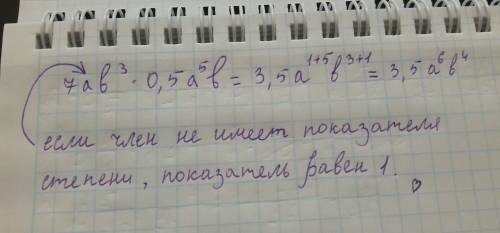 7ав³ · 0,5а⁵в = 3,5а¹⁺⁵в³⁺¹ = 3,5а⁶в⁴
если член не имеет показателя
степени, показатель равен 1.